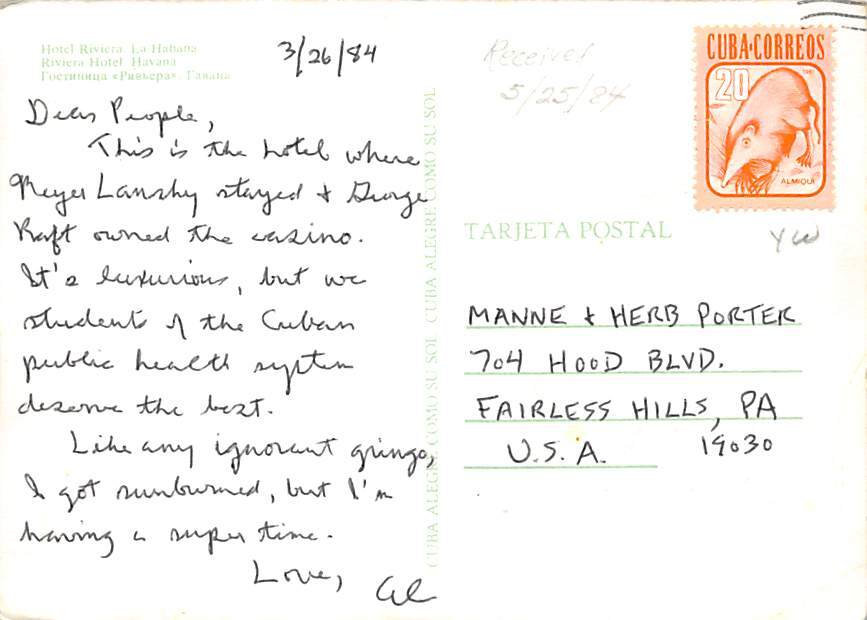 Hotel Riviera. La Habana
Riviera Hotel. Havana
Гостиница «Ривьера». Гавана
3/26/84
Dear People,
This is the hotel where
Meyer Lansky stayed & George
Raft owned the casino.
It's luxurious, but we
students of the Cuban
public health system
deserve the best.
Like any ignorant gringo,
I got sunburned, but I'm
having a super time.
Love,
Al
CUBA ALEGRE COMO SU SOL CUBA ALEGRE COMO SU SOL
Received
5/25/84
CUBA·CORREOS
20
ALMIQUI
TARJETA POSTAL
YW
MANNE & HERB PORTER
704 HOOD BLVD.
FAIRLESS HILLS, PA
U.S.A. 19030